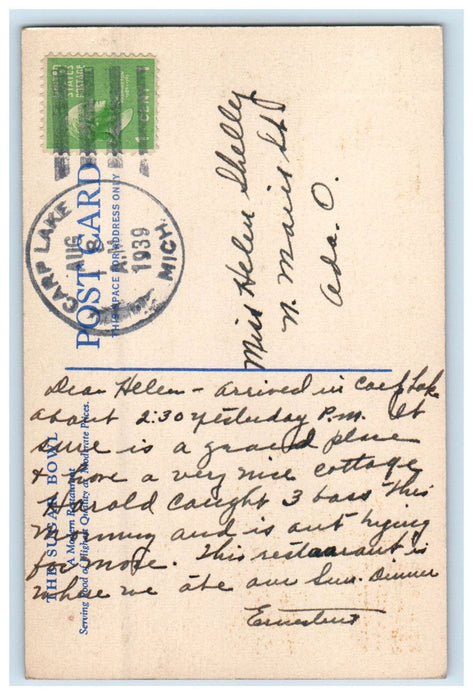 UNITED
STATES
POSTAGE
1 CENT 1
CARP LAKE
AUG
8
A.M.
1939
MICH.
POST CARD
THIS SPACE FOR ADDRESS ONLY
Miss Helen Shelly
N. Main St
Ada. O.
Dear Helen - arrived in Carp Lake
about 2:30 yesterday P.M. It
sure is a grand place
& have a very nice cottage
Harold caught 3 bass this
morning and is out trying
for more. This restaurant is
where we ate our Sun. Dinner
THE SUGAR BOWL
A Modern Restaurant
Serving Food of Highest Quality at Moderate Prices.